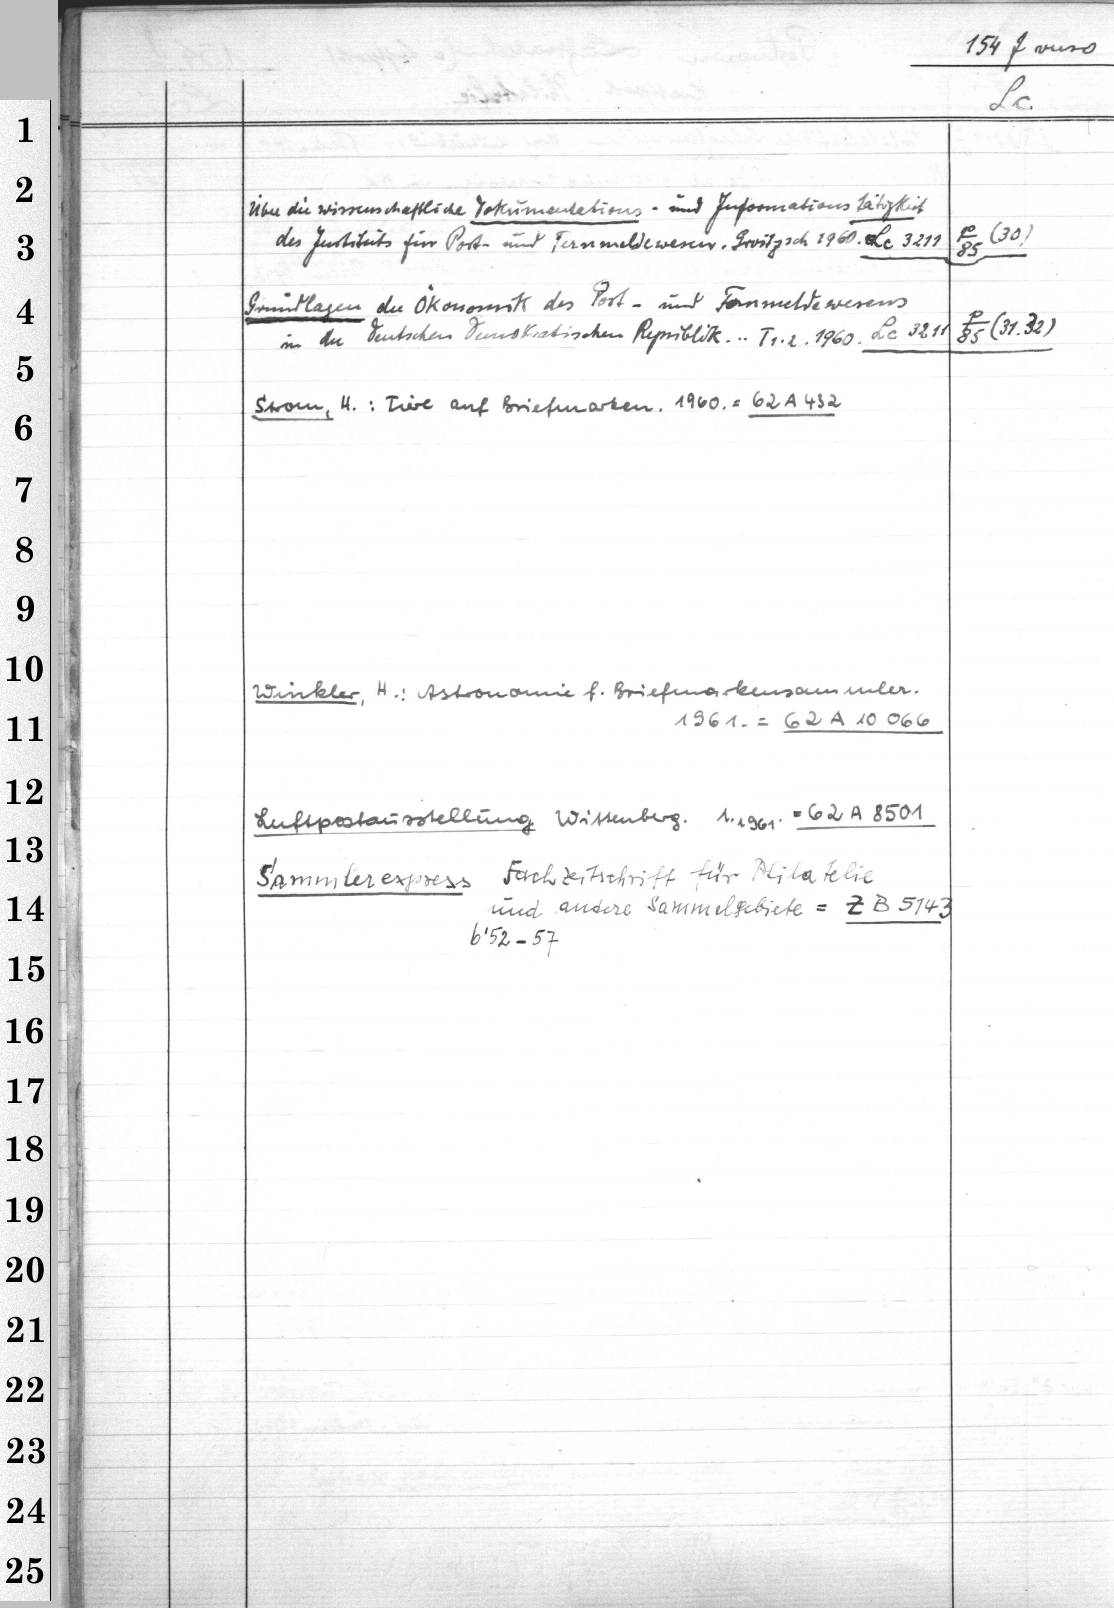 154 f verso
Lc.
1
2
Über die wissenschaftliche Dokumentations- und Informationstätigkeit
3
des Instituts für Post- und Fernmeldewesen. Groitzsch 1960. Lc 3211 P/85 (30)
4
Grundlagen der Ökonomik des Post- und Fernmeldewesens
in der Deutschen Demokratischen Republik. .. T 1.2. 1960. Lc 3211 P/85 (31.32)
5
Strom, H.: Tiere auf Briefmarken. 1960. = 62 A 432
6
7
8
9
10
Winkler, H.: Astronomie f. Briefmarkensammler.
11
1961. = 62 A 10 066
12
Luftpostausstellung Wittenberg. 1. 1961. = 62 A 8501
13
Sammlerexpress Fachzeitschrift für Philatelie
14
und andere Sammelgebiete = Z B 5143
b'52-57
15
16
17
18
19
20
21
22
23
24
25